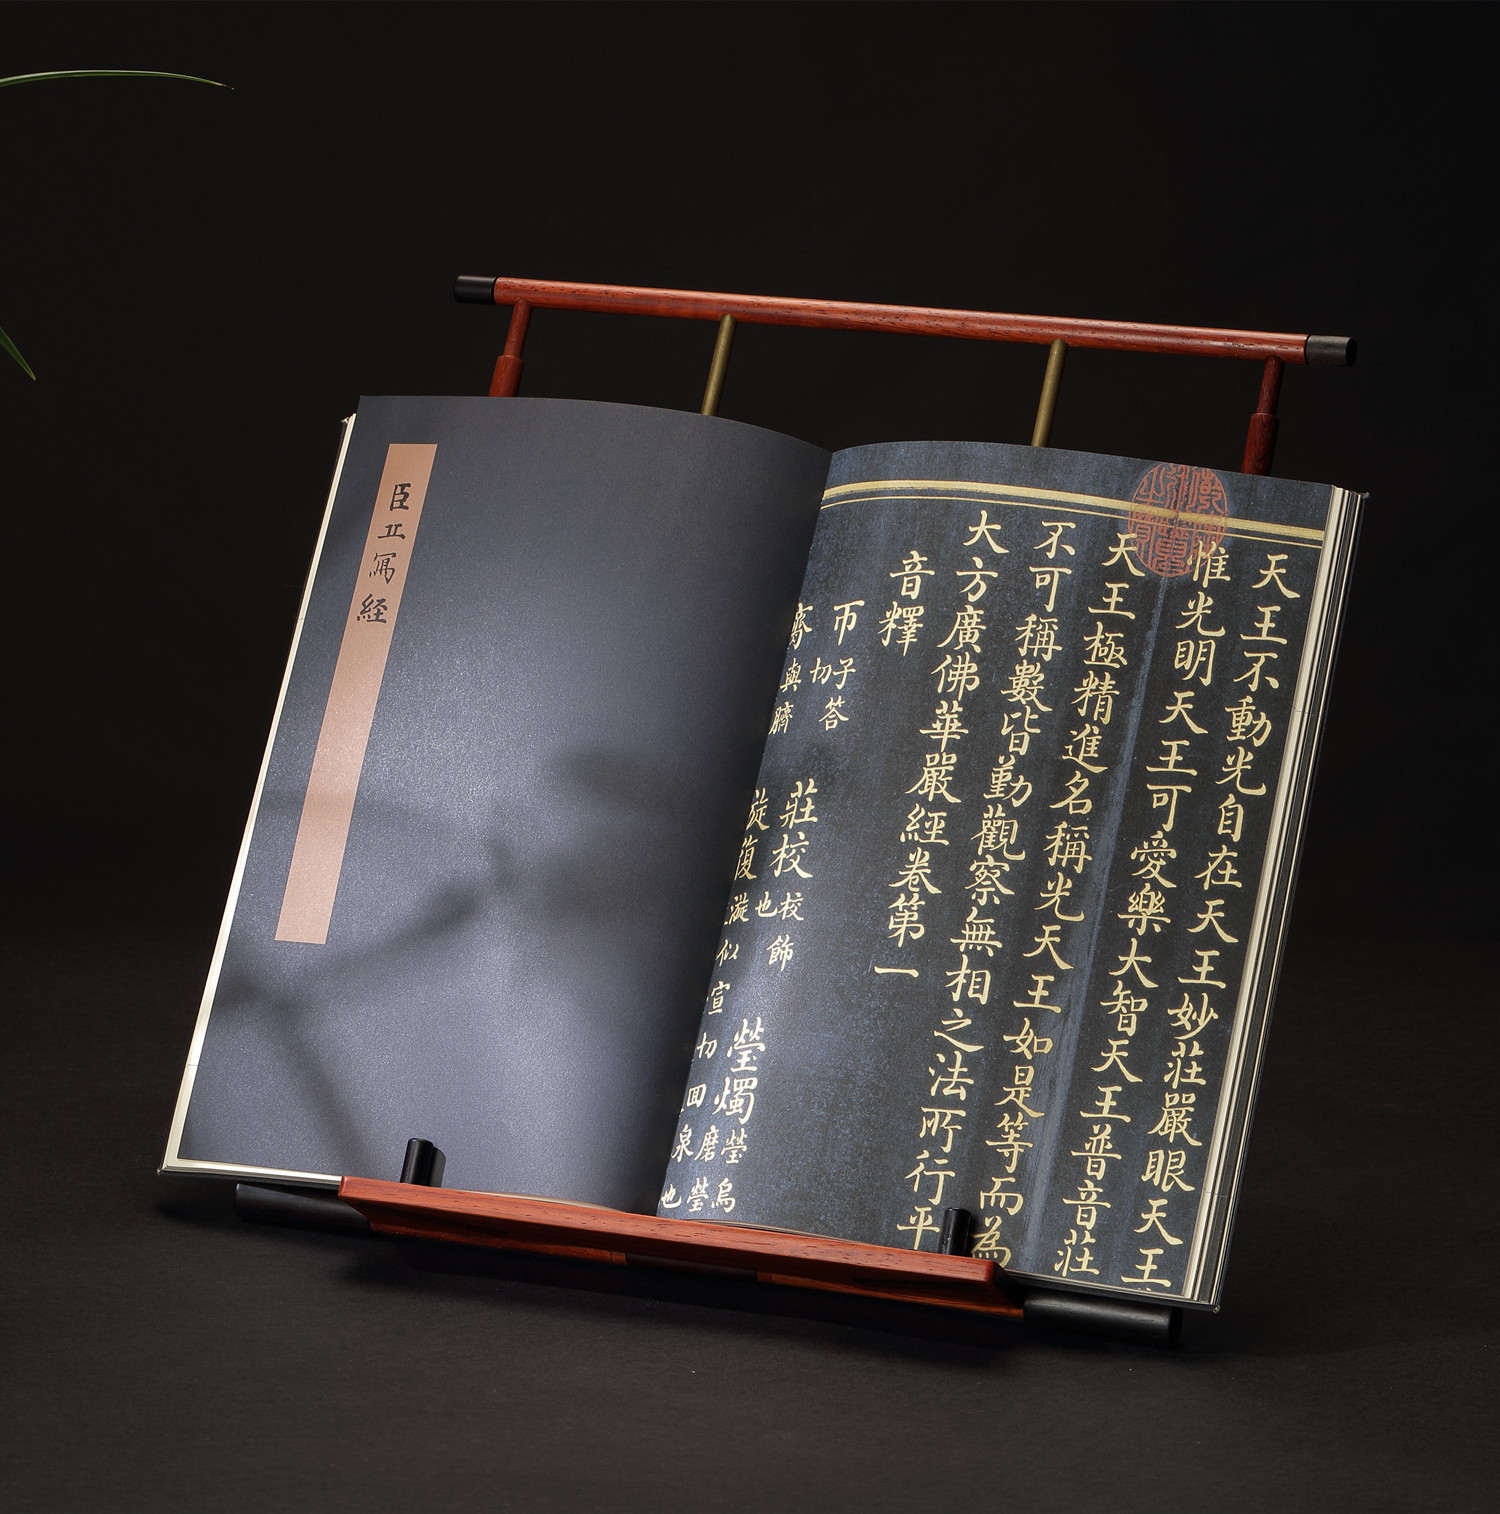 臣工寫経
天王不動光自在天王妙莊嚴眼天王
惟光明天王可愛樂大智天王普音莊
天王極精進名稱光天王如是等而為
不可稱數皆勤觀察無相之法所行平
大方廣佛華嚴經卷第一
音釋
帀子答切 莊校校飾也 瑩燭瑩烏磨瑩
與臍 旋澓漩似宣切回泉也